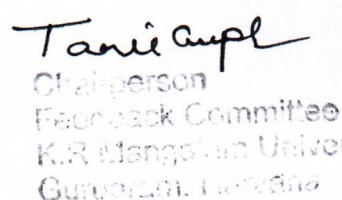 Chairperson
Feedback Committee
K.R Mangalam Univer
Gurugram, Haryana